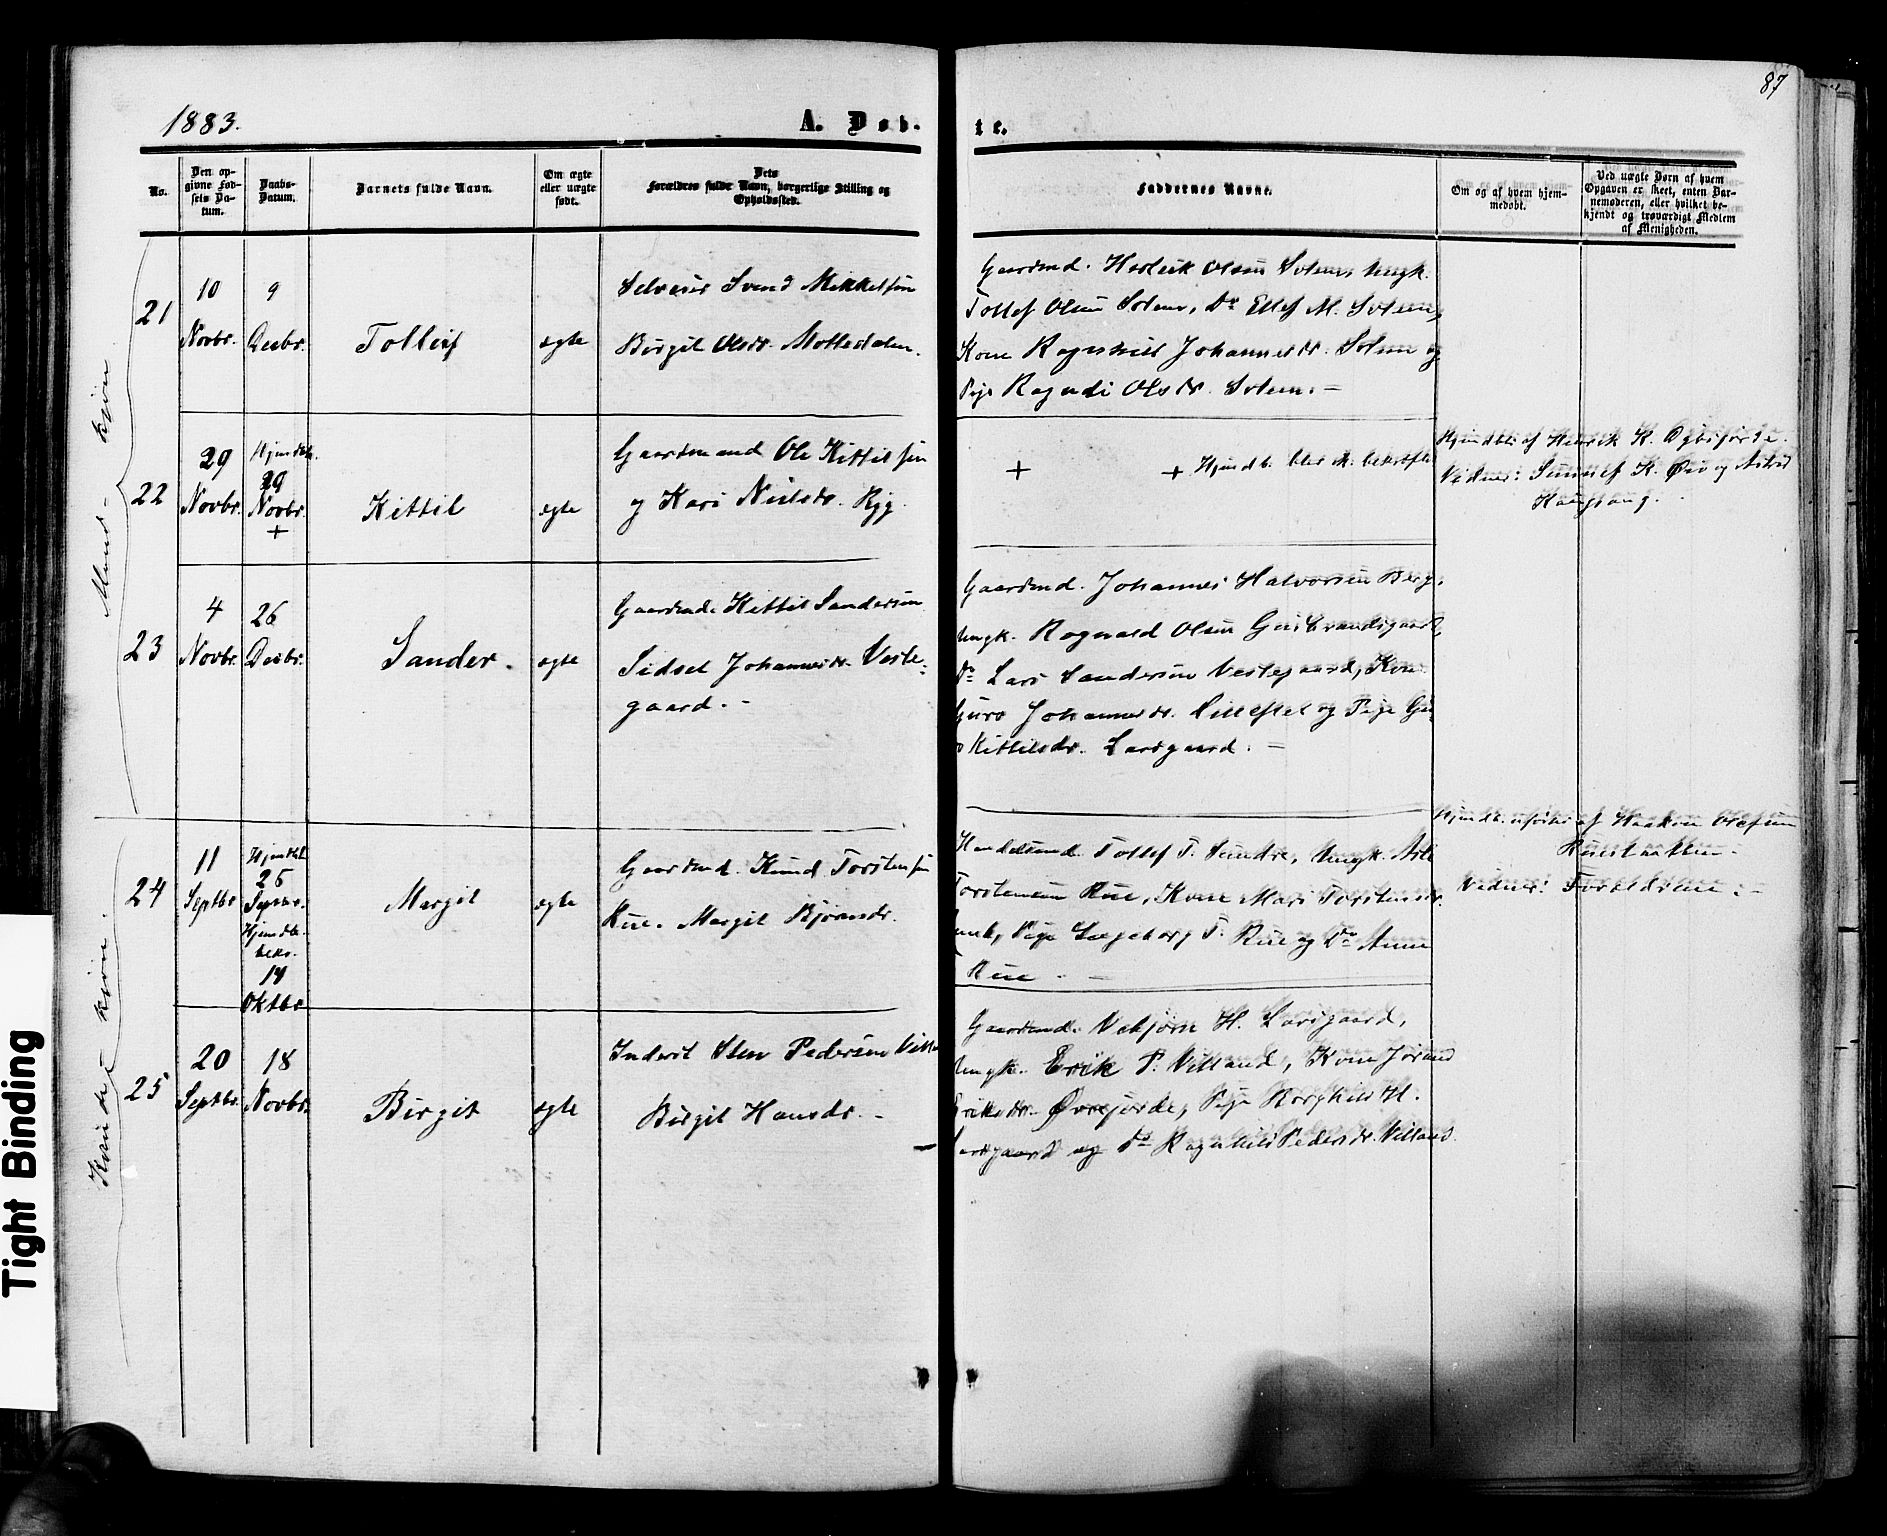 87
1883.
A. Døb-
te.
No.
Den op-
givne Fød-
sels Da-
tum.
Daabs-
Datum.
Barnets fulde Navn.
Om ægte
eller uægte
født.
Dets
Forældres fulde Navn, borgerlige Stilling og
Opholdssted.
Faddernes Navne.
Om og af hvem hjem-
medøbt.
Ved uægte Børn af hvem
Opgaven er skeet, enten Bar-
nemøderen, eller hvilket be-
kjendt og troværdigt Medlem
af Menigheden.
Mand-kjøn
21
10
Novbr.
9
Decbr.
Tolleif
ægte
Selveier Svend Mikkelsen
Birgit Olsdr. Mottedalen.
Gaardmd. Olsen Solem, Ungk.
Tollef Olsen Solem, Do Ellef M. Solem,
Kone Ragnhild Johannesdr. Solem og
Pige Ragndi Olsdr. Solem. -
22
29
Novbr.
Hjemdbt.
29
Novbr.
+
Kittil
ægte
Gaardmand Ole Kittilsen
og Kari Nielsdr. Ryg.
+
+ Hjemdb. blev ik. bekræftet
Hjemdbt. af Henrik K.
Vidner: K. og Astrid
Haugsaug.
23
4
Novbr.
26
Decbr.
Sander.
ægte
Gaardmd. Kittil Sandersen
Sidsel Johannesdr. Veste-
gaard. -
Gaardmd. Johannes Halvorsen Berg,
Ungk. Ragnvald Olsen Gulbrandsgaard,
Do Lars Sandersen Vestegaard, Kone
Guro Johannesdr. og Pige Gu-
ro Kittilsdr. Larsgaard. -
Kvindekjøn.
24
11
Septbr.
Hjemdbt.
25
Septbr.
Hjemdb.
bekr.
14
Oktbr.
Margit
ægte
Gaardmd. Knud Torstensen
Rue. Margit Bjørnsdr.
Handelsmd. Tollef T. Sundre, Ungk. Asle
Torstensen Rue, Kone Mari Torstensdr.
Pige Ingeborg T. Rue og Do Anne
T. Rue. -
Hjemdb. udførtes af Haakon Olefsen
Vidner: Forældrene. -
25
20
Septbr.
18
Novbr.
Birgit
ægte
Inderst Sten Pedersen
Birgit Hansdr. -
Gaardmd. Vebjørn H. Larsgaard,
Ungk. Erik P. Villand, Kone Jørand
Eriksdr. Øvrejorde, Pige Borghild H.
Larsgaard og Do Ragnhild Pedersdr. Villand.
Tight Binding